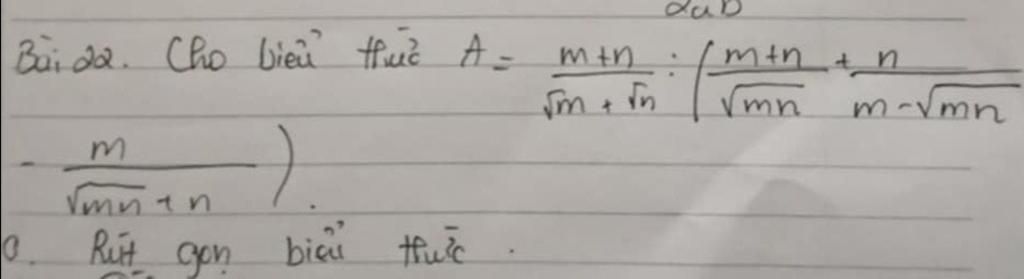 2ab
Bài 22. Cho biểu thức A = \frac{m+n}{\sqrt{m}+\sqrt{n}} : ( \frac{m+n}{\sqrt{mn}} + \frac{n}{m-\sqrt{mn}}
- \frac{m}{\sqrt{mn}+n} ).
a. Rút gọn biểu thức.